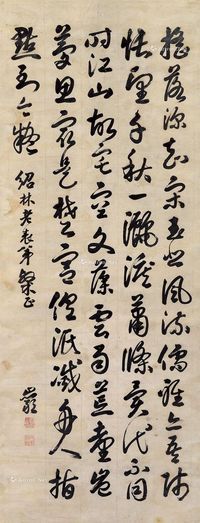 搖落深知宋玉悲風流儒雅亦吾師
悵望千秋一灑淚蕭條異代不同
時江山故宅空文藻雲雨荒臺豈
夢思最是楚宮俱泯滅舟人指
點到今疑 紹林老表弟粲正